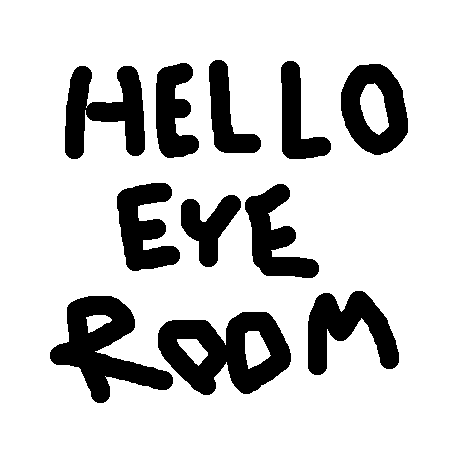 HELLO
EYE
ROOM